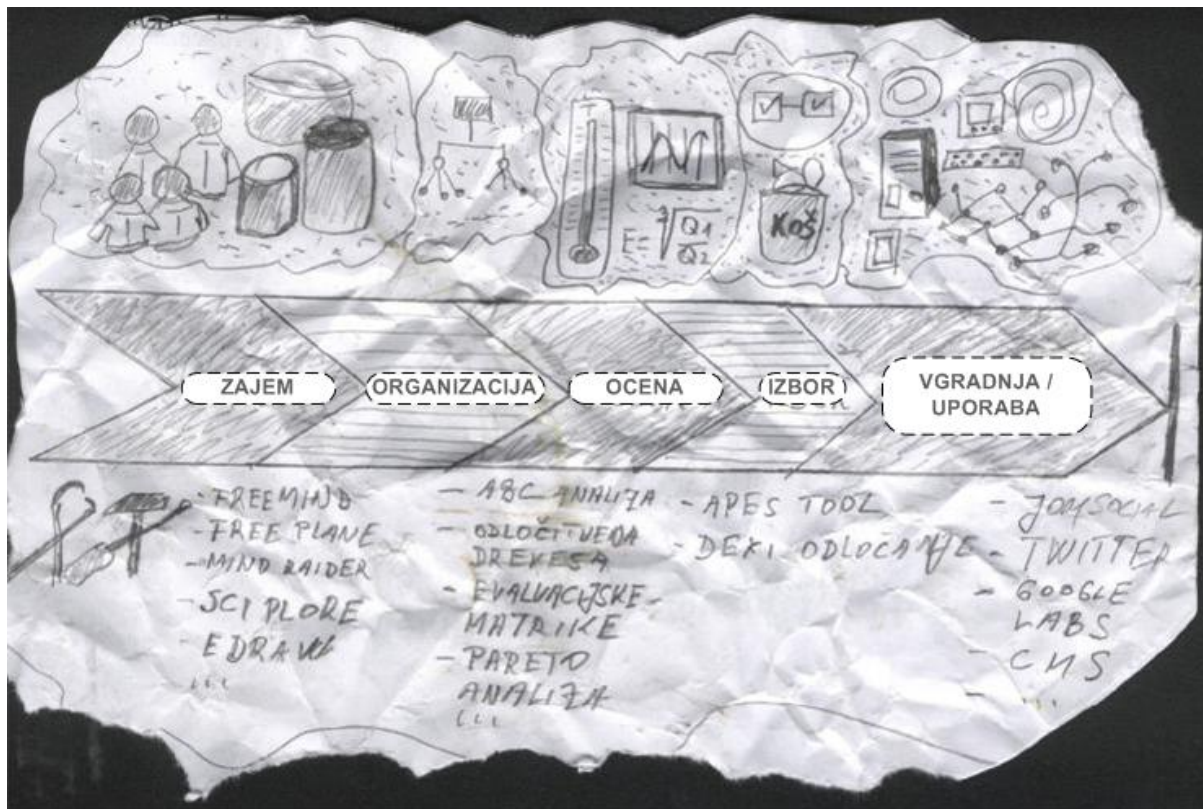 E= ³√Q1/Q2
KOŠ
ZAJEM
ORGANIZACIJA
OCENA
IZBOR
VGRADNJA /
UPORABA
- FREEMIND
- FREE PLANE
- MIND RAIDER
- SCI PLORE
EDRAW
...
- ABC ANALIZA
- ODLOČITVENA
DREVESA
- EVALVACIJSKE
MATRIKE
- PARETO
ANALIZA
...
- APES TOOL
- DEXI ODLOČANJE
- JOMSOCIAL
- TWITTER
- GOOGLE
LABS
- CMS
- ...